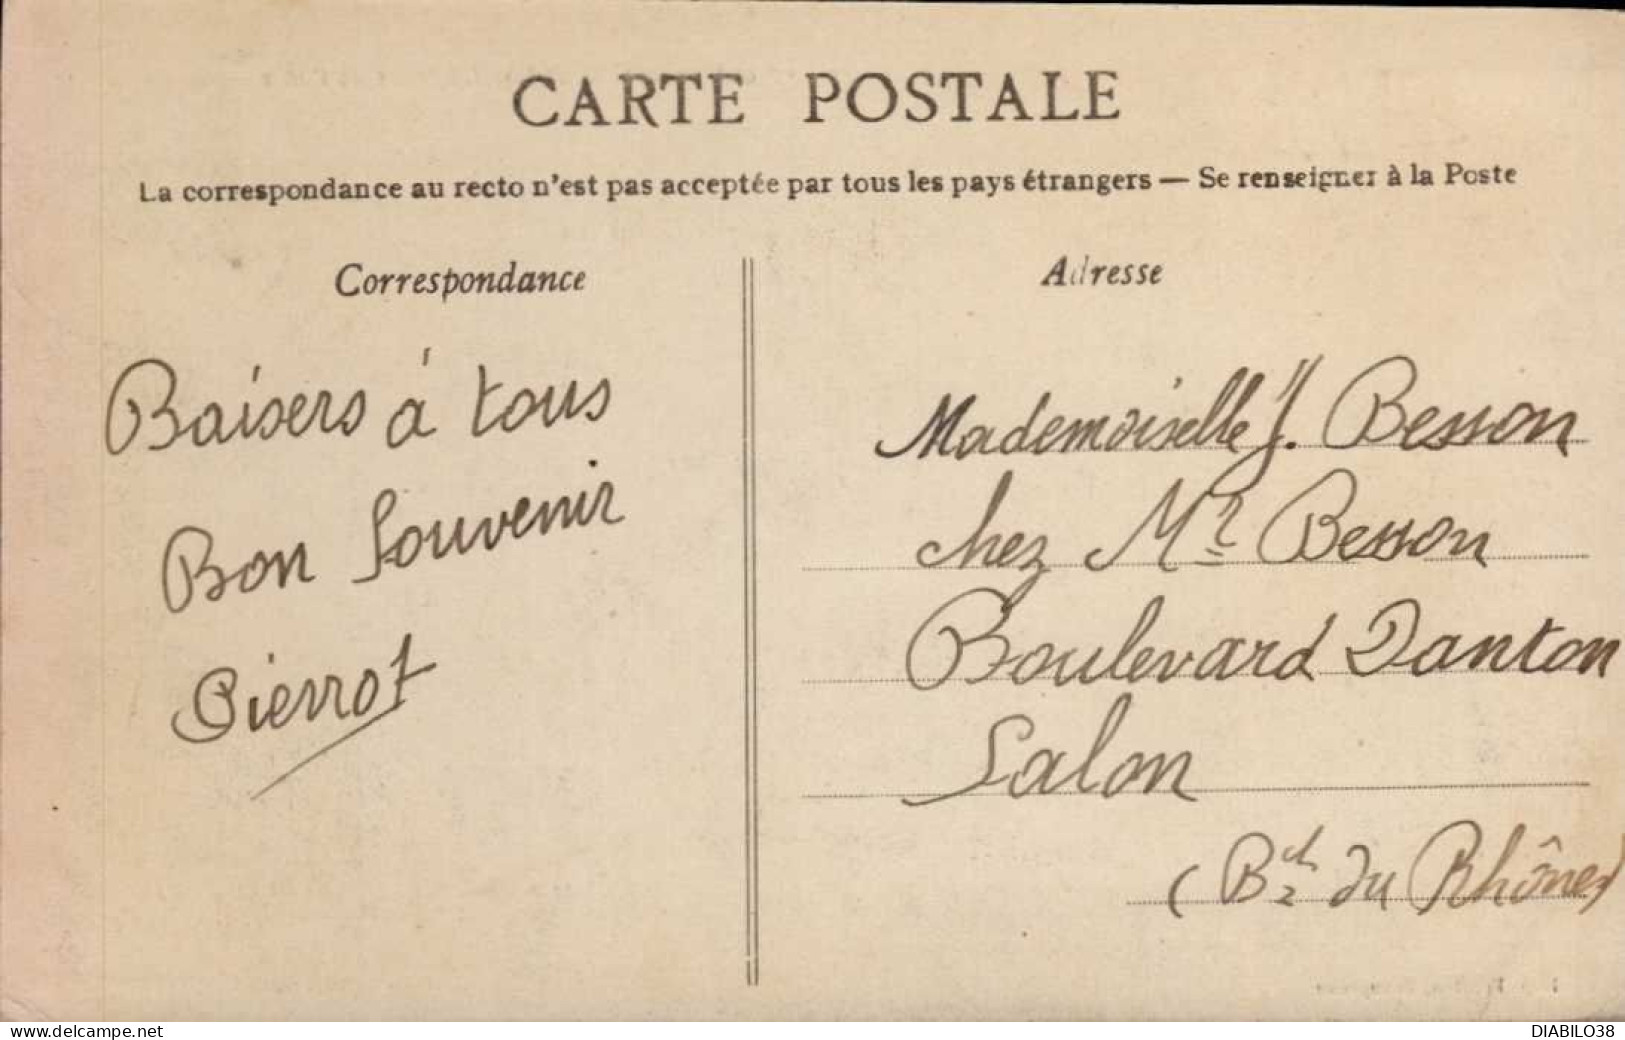 CARTE POSTALE
La correspondance au recto n'est pas acceptée par tous les pays étrangers — Se renseigner à la Poste
Correspondance
Baisers à tous
Bon Souvenir
Pierrot
Adresse
Mademoiselle J. Besson
chez Mr Besson
Boulevard Danton
Salon
(Bch du Rhône)
www.delcampe.net
DIABILO38